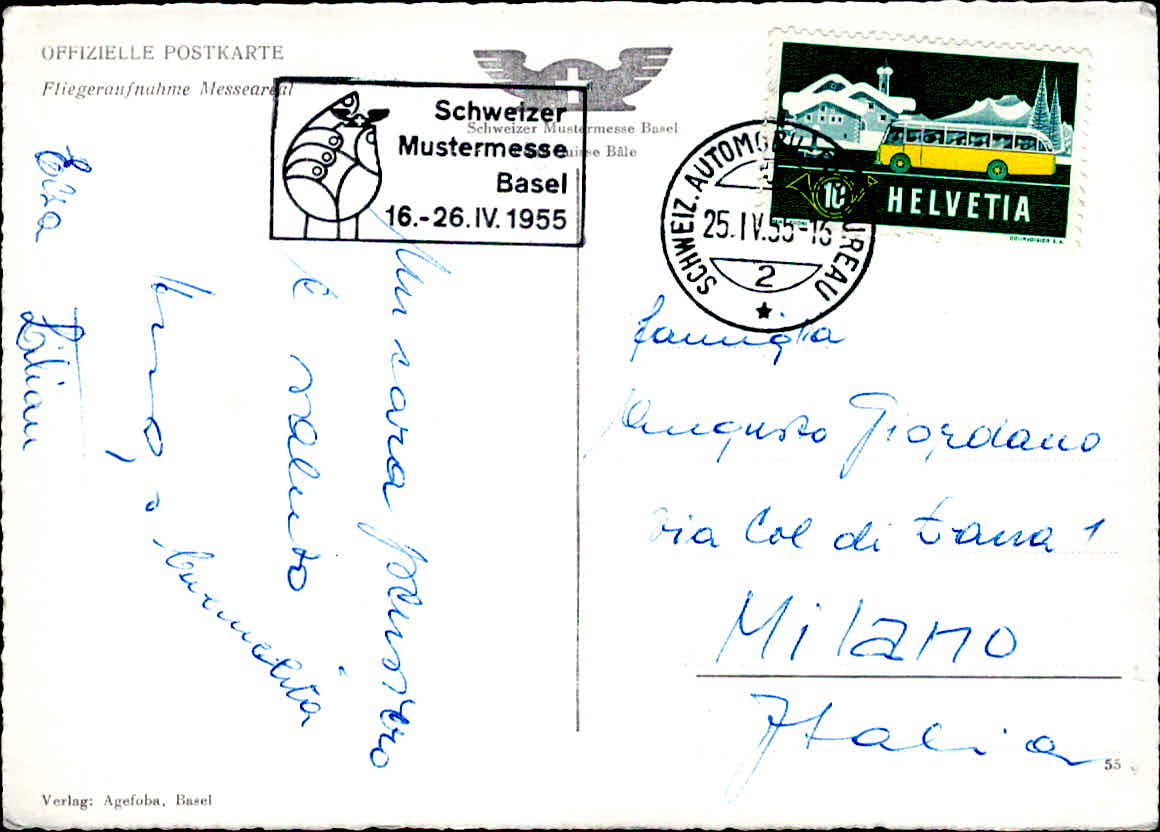 OFFIZIELLE POSTKARTE
Fliegeraufnahme Messeareal
Schweizer Mustermesse Basel
Suisse Bâle
Schweizer
Mustermesse
Basel
16.-26.IV.1955
SCHWEIZ. AUTOMOBIL BUREAU
25.IV.55-16
2
10
HELVETIA
COURVOISIER S.A.
famiglia
Augusto Giordano
via Col di Lana 1
Milano
Italia
Un caro pensiero
e saluto
Carmelita
Elsa
Lilian
Verlag: Agefoba, Basel
55